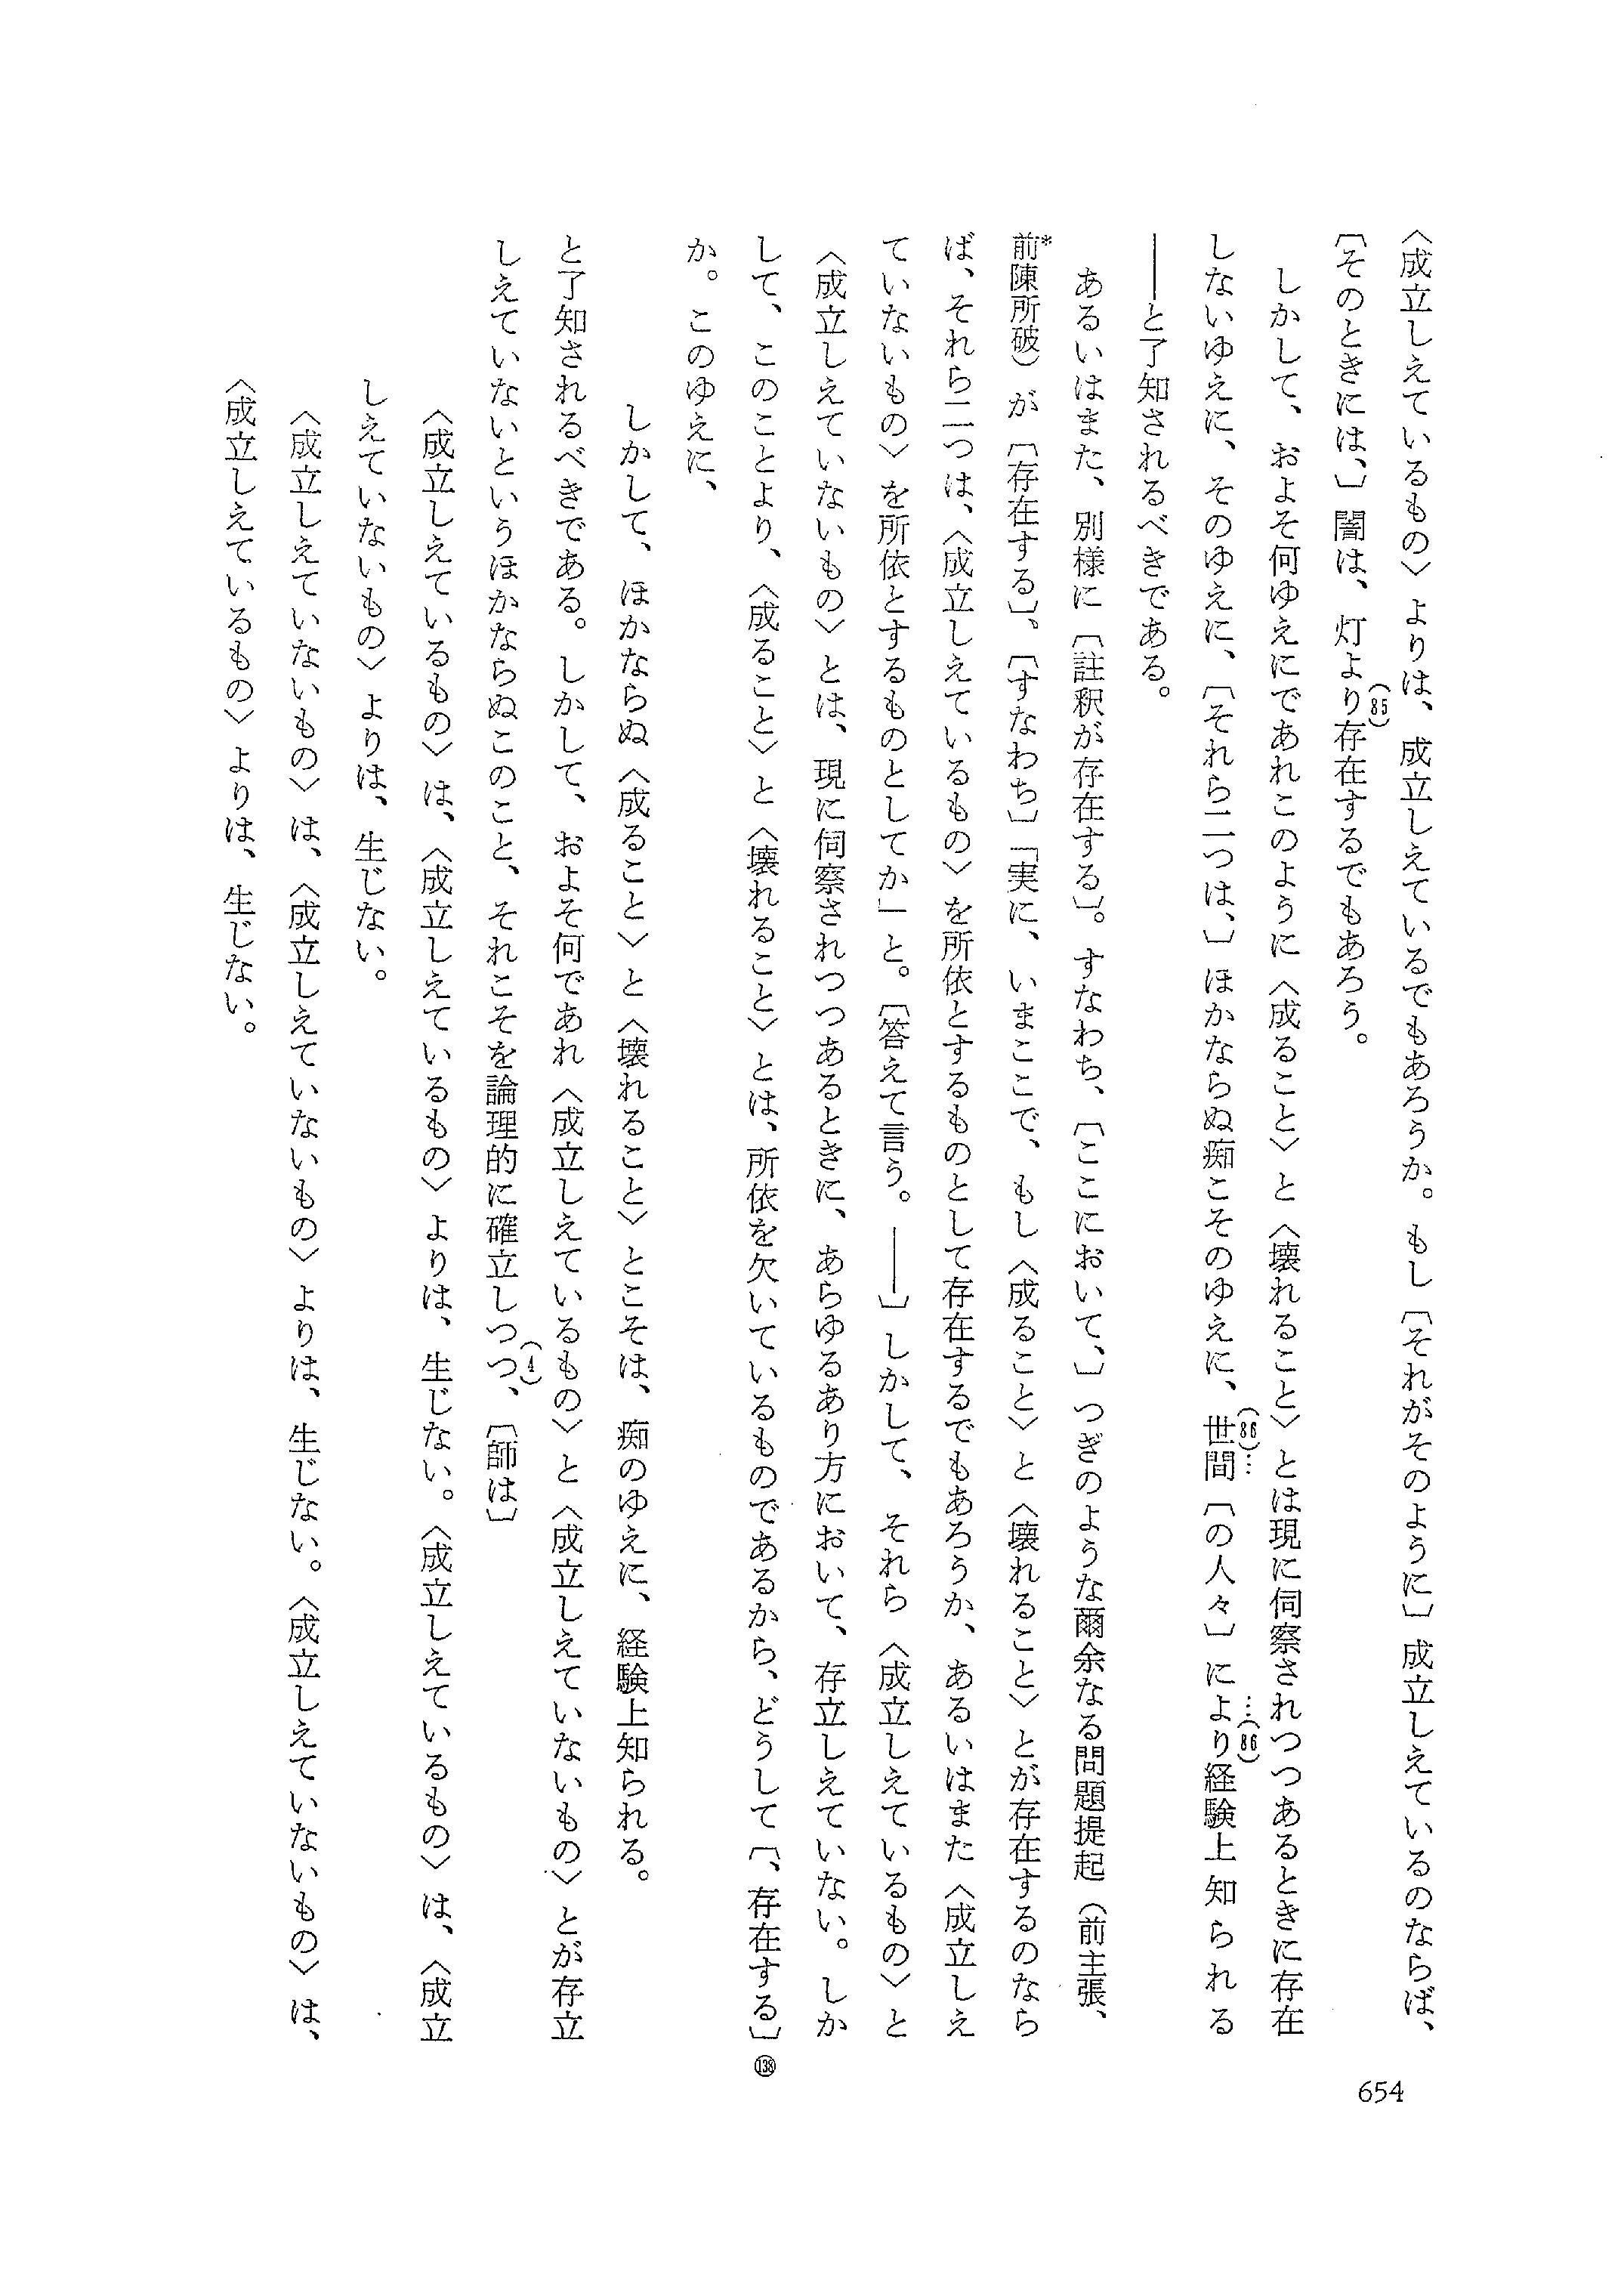 〈成立しえているもの〉よりは、成立しえているでもあろうか。もし〔それがそのように〕成立しえているのならば、
〔そのときには、〕闇は、灯より(85)存在するでもあろう。
しかして、およそ何ゆえにであれこのように〈成ること〉と〈壊れること〉とは現に伺察されつつあるときに存在
しないゆえに、そのゆえに、〔それら二つは、〕ほかならぬ痴こそのゆえに、(86)…世間〔の人々〕により…(86)経験上知られる
——と了知されるべきである。
あるいはまた、別様に〔註釈が存在する〕。すなわち、〔ここにおいて、〕つぎのような爾余なる問題提起（前主張、
*前陳所破）が〔存在する〕、〔すなわち〕「実に、いまここで、もし〈成ること〉と〈壊れること〉とが存在するのなら
ば、それら二つは、〈成立しえているもの〉を所依とするものとして存在するでもあろうか、あるいはまた〈成立しえ
ていないもの〉を所依とするものとしてか」と。〔答えて言う。——〕しかして、それら〈成立しえているもの〉と
〈成立しえていないもの〉とは、現に伺察されつつあるときに、あらゆるあり方において、存立しえていない。しか
して、このことより、〈成ること〉と〈壊れること〉とは、所依を欠いているものであるから、どうして〔、存在する〕⑬⑧
か。このゆえに、
しかして、ほかならぬ〈成ること〉と〈壊れること〉とこそは、痴のゆえに、経験上知られる。
と了知されるべきである。しかして、およそ何であれ〈成立しえているもの〉と〈成立しえていないもの〉とが存立
しえていないというほかならぬこのこと、それこそを論理的に確立しつつ(4)、〔師は〕
〈成立しえているもの〉は、〈成立しえているもの〉よりは、生じない。〈成立しえているもの〉は、〈成立
しえていないもの〉よりは、生じない。
〈成立しえていないもの〉は、〈成立しえていないもの〉よりは、生じない。〈成立しえていないもの〉は、
〈成立しえているもの〉よりは、生じない。
654